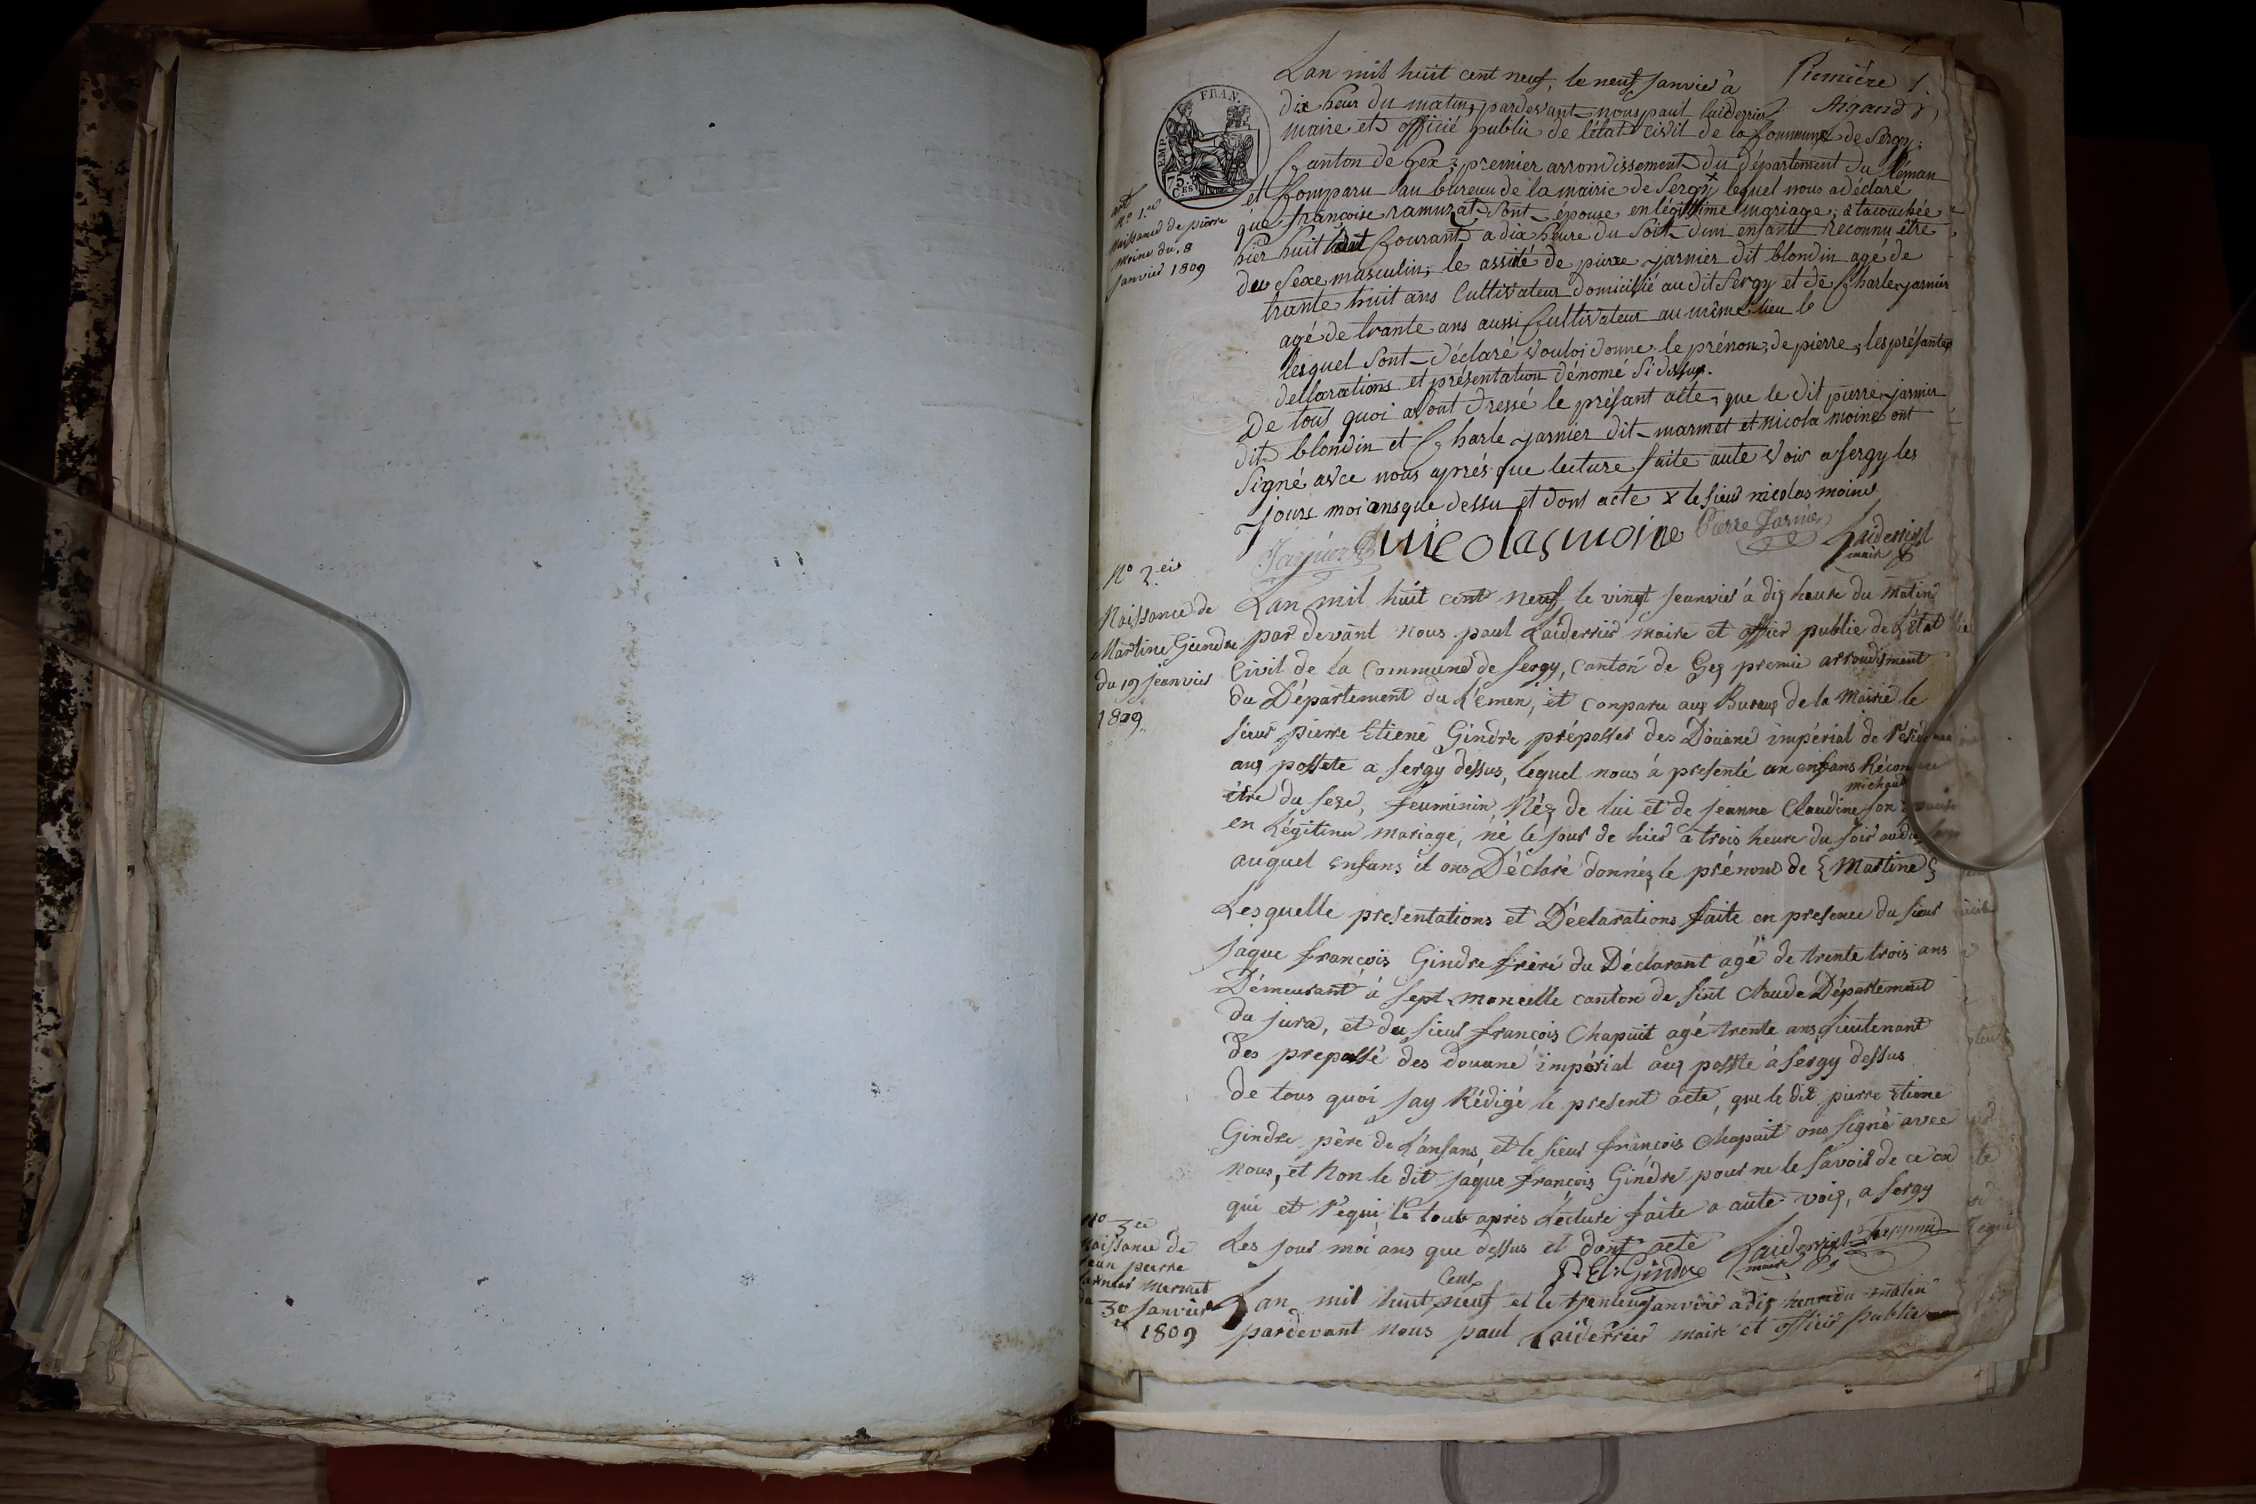 Première 1.
Argand
FRAN.
EMP.
75.
CES
Lan mil huit cent neuf, le neuf Janvier à
dix heur du matin, pardevant nous paul laiderrier
maire et officié public de létat civil de la Commune de Sergy,
Canton de Gex, premier arrondissement du département du Léman
et Comparu au bureau de la mairie de Sergy x lequel nous a déclaré
que françoise ramuzat sont épouse en légittime mariage, à tacouchée
hier huit du Courant a dix heure du soir dun enfant reconnu être
du Sexe masculin, le assité de pierre jarnier dit blondin agé de
trante huit ans Cultivateur domicilié au dit Sergy et de Charle jarnier
agé de trante ans aussi Cultivateur au même lieu le
lesquel sont déclaré vouloi donne le prénon de pierre, les présante
dellarations et présentation dénomé Si dessus.
De tous quoi avont dressé le présant acte, que le dit pierre jarnier
dit blondin et Charle jarnier dit marmet et nicola moine ont
Signé avce nous après que lecture faite aute voir a sergy les
jours moi ans que dessu et dont acte x le sieur nicolas moine
Jarnier nicolas moine Pierre Jarnier Laiderrier
maire
N° 1.er
Naissance de pierre
Moine du 8
Janvier 1809
N° 2.eis
Naissance de
Martine Geindre
du 19 Jeanvier
1809
Lan mil huit cent neuf le vingt Jeanvier à dix heure du matin
par devant nous paul Laiderrier maire et offier publie de L'état
Civil de la Commune de Sergy, canton de Gex premie arrondisment
du Département du L'émen, et comparu aux Buraux de la Mairie le
sieur pierre Etiene Gindre préposser des Douane impérial de résidence
aux possete a Sergy dessus, lequel nous à presenté un enfans Réconnue
être du sexe, feuminin, Néz de lui et de Jeanne Claudine michaud son épouse
en Légitime mariage, né le jour de hier à trois heure du soir audit Sergy
auquel enfans il ons Déclaré donnéz le prénoms de { Martine }
Lesquelle presentations et Déclarations faite en presence du sieur
Jaque françois Gindre frére du Déclarant agé de trente trois ans
Démeurant à sept moncelle canton de sint Claude Département
du jura, et du sieur françois Chapuit agé trente ans Lieutenant
des preposse des douane impérial aux possete à sergy dessus
de tous quoi jay Rédigé le present acte, que le dit pierre Etiene
Gindre père de L'anfans et le sieur françois Chapuit ons signé avec
nous, et non le dit Jaque françois Gindre pour ne le savoir de ce en
qui et réqui le tout après Lecture faite a aute voix, a Sergy
Les jour moi ans que dessus et dont acte
P. Et. Gindre Laiderrier
maire
N° 3.ee
Naissance de
Jean pierre
Jarnier Mermet
du 30 Janvier
1809
Lan mil huit Cent neuf et le trente Janvier à dix heure du matin
pardevant nous paul Laiderrier maire et officier publie